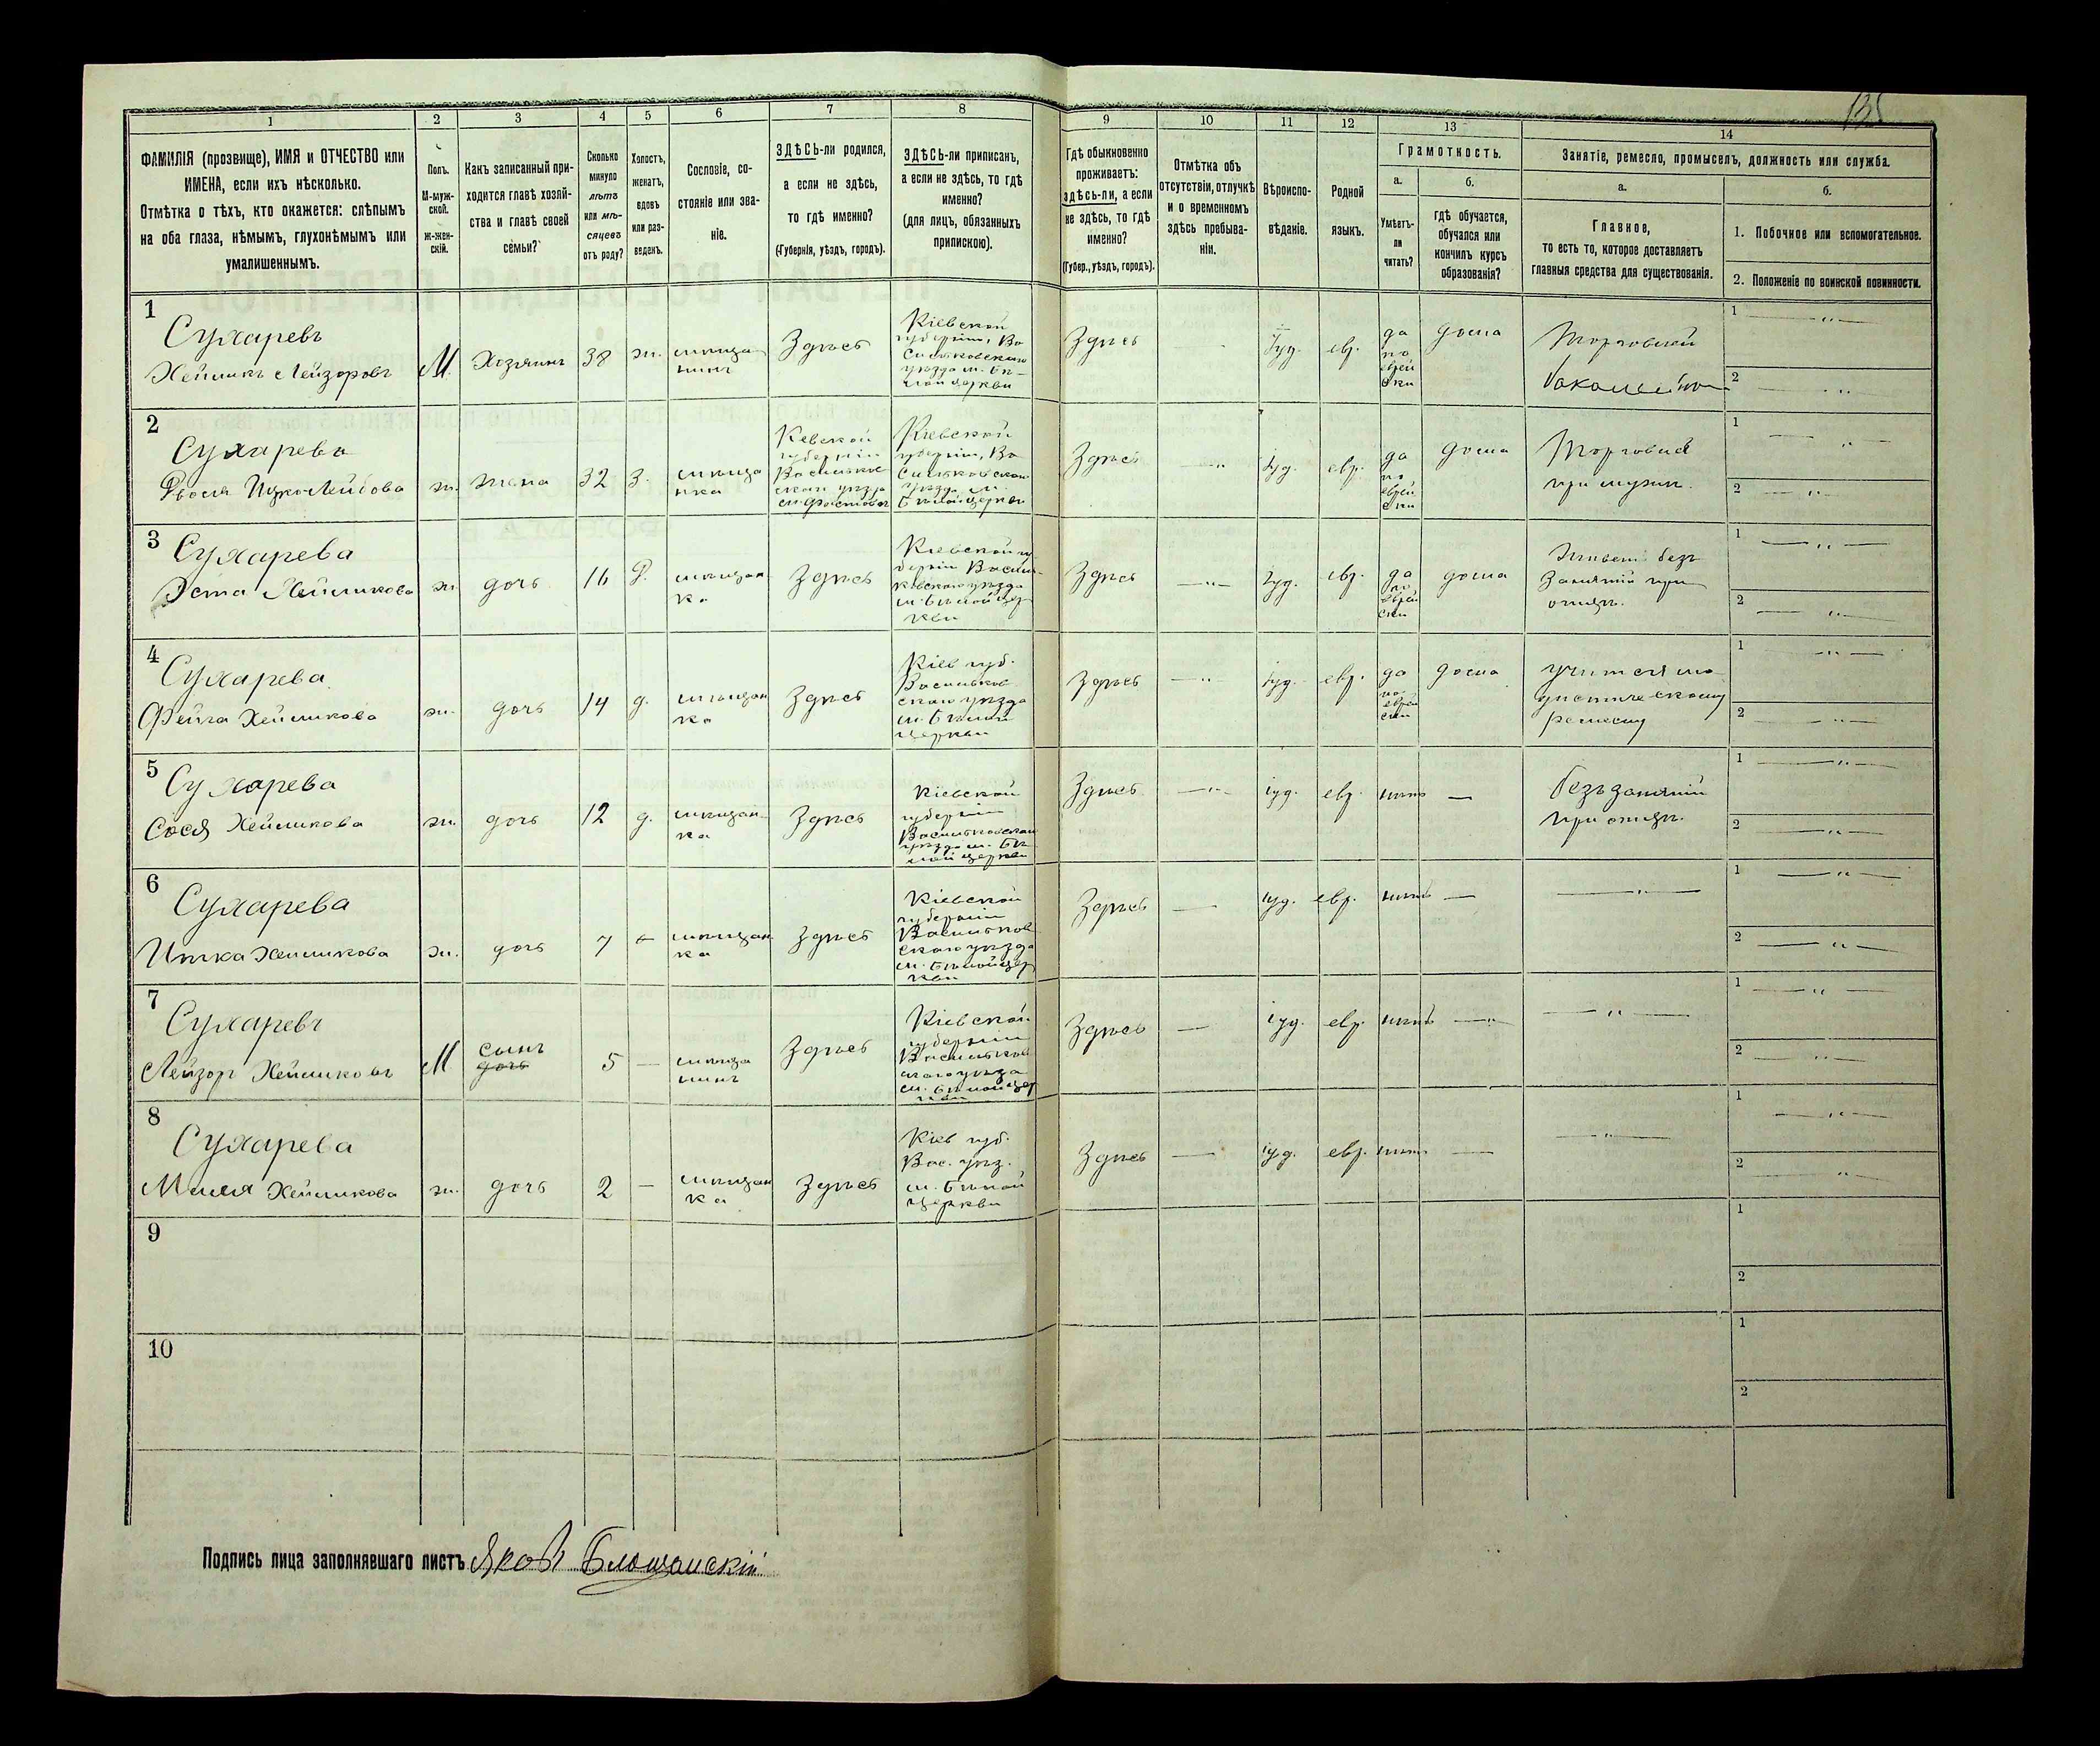 135
1
2
3
4
5
6
7
8
9
10
11
12
13
14
ФАМИЛІЯ (прозвище), ИМЯ и ОТЧЕСТВО или
ИМЕНА, если ихъ нѣсколько.
Отмѣтка о тѣхъ, кто окажется: слѣпымъ
на оба глаза, нѣмымъ, глухонѣмымъ или
умалишеннымъ.
Полъ.
М-муж-
ской.
ж-жен-
скій.
Какъ записанный при-
ходится главѣ хозяй-
ства и главѣ своей
семьи?
Сколько
минуло
лѣтъ
или мѣ-
сяцевъ
отъ роду?
Холостъ,
женатъ,
вдовъ
или раз-
веденъ.
Сословіе, со-
стояніе или зва-
ніе.
ЗДѢСЬ-ли родился,
а если не здѣсь,
то гдѣ именно?
(Губернія, уѣздъ, городъ).
ЗДѢСЬ-ли приписанъ,
а если не здѣсь, то гдѣ
именно?
(для лицъ, обязанныхъ
припискою).
Гдѣ обыкновенно
проживаетъ:
здѣсь-ли, а если
не здѣсь, то гдѣ
именно?
(Губер., уѣздъ, городъ).
Отмѣтка объ
отсутствіи, отлучкѣ
и о временномъ
здѣсь пребыва-
ніи.
Вѣроиспо-
вѣданіе.
Родной
языкъ.
Грамотность.
а.
Умѣетъ-
ли
читать?
б.
гдѣ обучается,
обучался или
кончилъ курсъ
образованія?
Занятіе, ремесло, промыселъ, должность или служба.
а.
Главное,
то есть то, которое доставляетъ
главныя средства для существованія.
б.
1. Побочное или вспомогательное.
2. Положеніе по воинской повинности.
1
Сухаревъ
Хеймикъ Лейзоровъ
М.
Хозяинъ
38
ж.
мѣща
нинъ
Здѣсь
Кіевской
губерніи, Ва
сильковскаго
уѣзда м. Бѣ-
лой церкви
Здѣсь
Іуд.
евр.
да
по
еврей
ски
дома
Торговый
1
2
2
Сухарева
Ицко-Лейбова
ж.
жена
32
З.
мѣща
нка
Кевской
губерніи
Васильков
скаго уѣзда
м. Фастовъ
Кіевской
губерніи, Ва
сильковскаго
уѣзда м.
Бѣлой церкви
Здѣсь
Іуд.
евр.
да
по
еврей
ски
дома
Торговыя
при мужѣ.
1
2
3
Сухарева
Эста Хеймикова
ж.
дочь
16
Д.
мѣщан
ка
Здѣсь
Кіевской гу
берніи Василь-
ковскаго уѣзда
м. Бѣлой цер
кви
Здѣсь
Іуд.
евр.
да
по
еврей
ски
дома
Живетъ безъ
занятій при
отцѣ.
1
2
4
Сухарева
Фейга Хеймикова
ж.
дочь
14
д.
мѣщан
ка
Здѣсь
Кіев губ.
Васильков
скаго уѣзда
м. Бѣлой
церкви
Здѣсь
іуд.
евр.
да
по
еврей
ски
дома
учится мо
дистическому
ремеслу
1
2
5
Сухарева
Сося Хеймикова
ж.
дочь
12
д.
мѣщан-
ка
Здѣсь
Кіевской
губерніи
Васильковскаго
уѣзда м. Бѣ
лой церкви
Здѣсь
іуд.
евр.
нѣтъ
безъ занятій
при отцѣ.
1
2
6
Сухарева
Итка Хеймикова
ж.
дочь
7
мѣщан
ка
Здѣсь
Кіевской
губерніи
Васильков
скаго уѣзда
м. Бѣлой цер
кви
Здѣсь
іуд.
евр.
нѣтъ
1
2
7
Сухаревъ
Лейзоръ Хеймиковъ
М
сынъ
дочь
5
мѣща
нинъ
Здѣсь
Кіевской
губерніи
Васильков
скаго уѣзда
м. Бѣлой цер
кви
Здѣсь
іуд.
евр.
нѣтъ
1
2
8
Сухарева
Хеймикова
ж.
дочь
2
мѣщан
ка
Здѣсь
Кіев губ.
Вас. уѣз.
м. Бѣлой
церкви
Здѣсь
іуд.
евр.
нѣтъ
1
2
9
1
2
10
1
2
Подпись лица заполнявшаго листъ